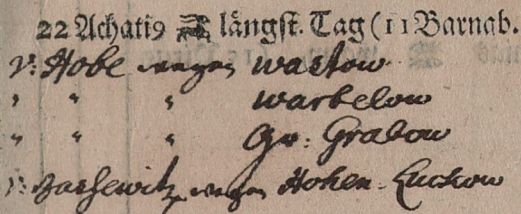 22 Achati9 längst. Tag (11 Barnab.
v: Hobe wegen wastow
" " " warbelow
" " " Gr: Grabow
v: Bassewitz wegen Hohen-Luckow